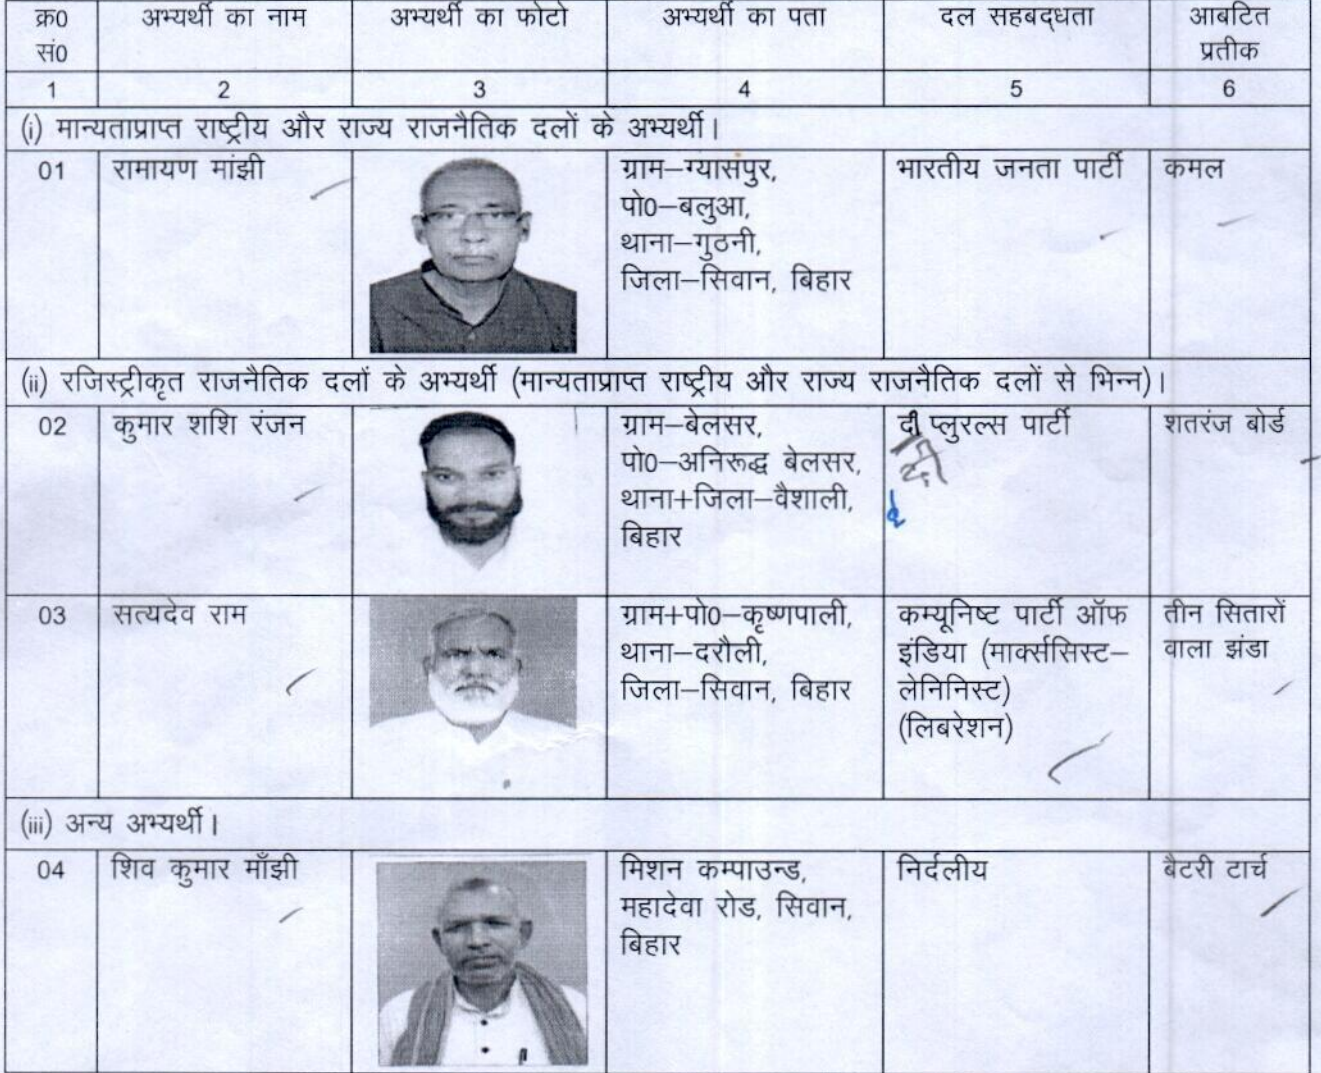 क्र0 सं0 अभ्यर्थी का नाम अभ्यर्थी का फोटो अभ्यर्थी का पता दल सहबद्धता आबटित प्रतीक
1 2 3 4 5 6
(i) मान्यताप्राप्त राष्ट्रीय और राज्य राजनैतिक दलों के अभ्यर्थी।
01 रामायण मांझी
ग्राम–ग्यासपुर,
पो0–बलुआ,
थाना–गुठनी,
जिला–सिवान, बिहार
भारतीय जनता पार्टी
कमल
(ii) रजिस्ट्रीकृत राजनैतिक दलों के अभ्यर्थी (मान्यताप्राप्त राष्ट्रीय और राज्य राजनैतिक दलों से भिन्न)।
02 कुमार शशि रंजन
ग्राम–बेलसर,
पो0–अनिरूद्ध बेलसर,
थाना+जिला–वैशाली,
बिहार
दी प्लुरल्स पार्टी
दी
शतरंज बोर्ड
03 सत्यदेव राम
ग्राम+पो0–कृष्णपाली,
थाना–दरौली,
जिला–सिवान, बिहार
कम्यूनिष्ट पार्टी ऑफ
इंडिया (मार्क्ससिस्ट–
लेनिनिस्ट)
(लिबरेशन)
तीन सितारों
वाला झंडा
(iii) अन्य अभ्यर्थी।
04 शिव कुमार माँझी
मिशन कम्पाउन्ड,
महादेवा रोड, सिवान,
बिहार
निर्दलीय
बैटरी टार्च